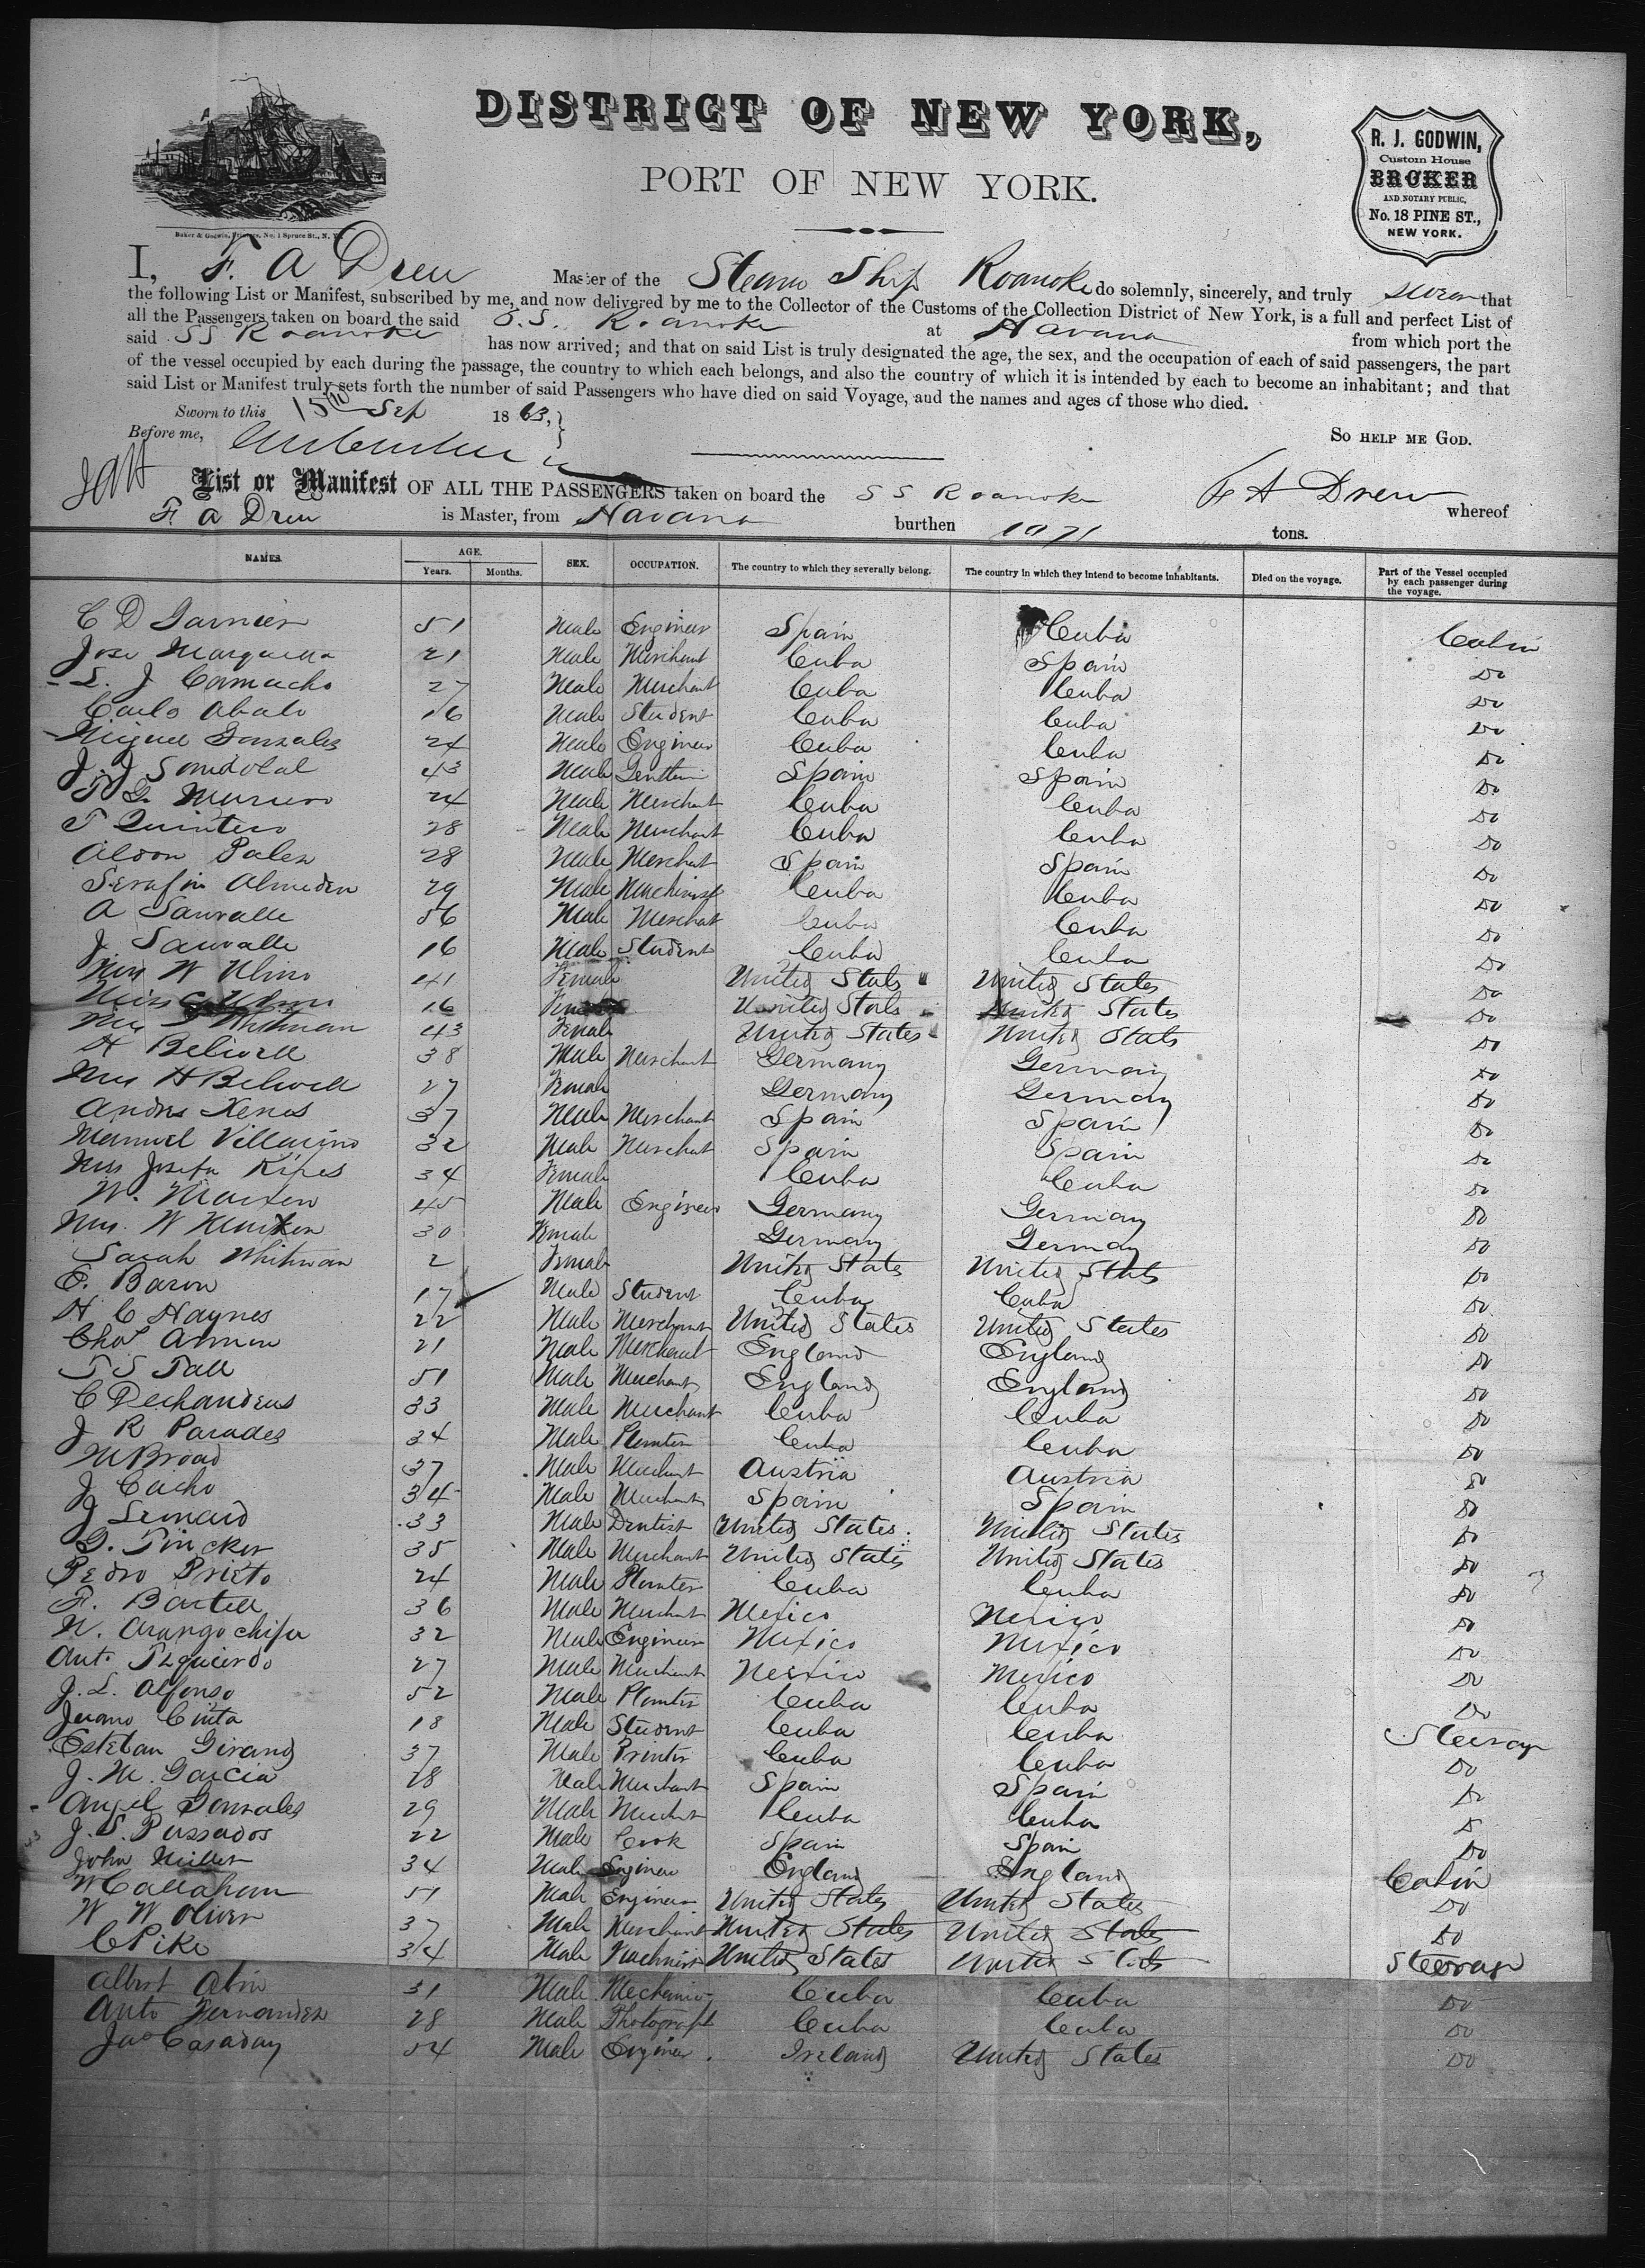 DISTRICT OF NEW YORK,
PORT OF NEW YORK.
R. J. GODWIN,
Custom House
BROKER
AND NOTARY PUBLIC,
No. 18 PINE ST.,
NEW YORK.
Baker & Godwin, Printers, No. 1 Spruce St., N. Y.
I, F. A Drew Master of the Steam Ship Roanoke do solemnly, sincerely, and truly swear that
the following List or Manifest, subscribed by me, and now delivered by me to the Collector of the Customs of the Collection District of New York, is a full and perfect List of
all the Passengers taken on board the said S.S. Roanoke at Havana from which port the
said SS Roanoke has now arrived; and that on said List is truly designated the age, the sex, and the occupation of each of said passengers, the part
of the vessel occupied by each during the passage, the country to which each belongs, and also the country of which it is intended by each to become an inhabitant; and that
said List or Manifest truly sets forth the number of said Passengers who have died on said Voyage, and the names and ages of those who died.
Sworn to this 15th Sep 1863,
Before me,
SO HELP ME GOD.
F A Drew
List or Manifest OF ALL THE PASSENGERS taken on board the S S Roanoke whereof
F. A Drew is Master, from Havana burthen 1071 tons.
NAMES. AGE. Years. Months. SEX. OCCUPATION. The country to which they severally belong. The country in which they intend to become inhabitants. Died on the voyage. Part of the Vessel occupied by each passenger during the voyage.
C D Garnier 51 Male Engineer Spain Cuba Cabin
Jose 21 Male Merchant Cuba Spain Do
L. J Camacho 27 Male Merchant Cuba Cuba Do
Carlo Abalo 16 Male Student Cuba Cuba Do
Miguel Gonzales 24 Male Engineer Cuba Cuba Do
J. J Sandoval 43 Male Spain Spain Do
24 Male Merchant Cuba Cuba Do
T Quintero 28 Male Merchant Cuba Cuba Do
28 Male Merchant Spain Spain Do
Serafin Almeden 29 Male Machinist Cuba Cuba Do
A Sauvalle 56 Male Merchant Cuba Cuba Do
J. Sauvalle 16 Male Student Cuba Cuba Do
Mrs W 41 Female United States United States Do
Miss 16 Female United States United States Do
Mrs S Whitman 43 Female United States United States Do
H 38 Male Merchant Germany Germany Do
Mrs H 27 Female Germany Germany Do
Andres 37 Male Merchant Spain Spain Do
Manuel Villarino 32 Male Merchant Spain Spain Do
Mrs Josefa 34 Female Cuba Cuba Do
W. 45 Male Engineer Germany Germany Do
Mrs. W 30 Female Germany Germany Do
Sarah Whitman 2 Female United States United States Do
E. Baron 17 Male Student Cuba Cuba Do
H C Haynes 22 Male Merchant United States United States Do
Chas 21 Male Merchant England England Do
T S Tall 51 Male Merchant England England Do
C 33 Male Merchant Cuba Cuba Do
J R Parades 34 Male Planter Cuba Cuba Do
M Broad 37 Male Merchant Austria Austria Do
J Cacho 34 Male Merchant Spain Spain Do
J 33 Male Dentist United States United States Do
G. Tincker 35 Male Merchant United States United States Do
Pedro Prieto 24 Male Planter Cuba Cuba Do
F. 36 Male Merchant Mexico Mexico Do
N. 32 Male Engineer Mexico Mexico Do
Anto 27 Male Merchant Mexico Mexico Do
J. L. Alfonso 52 Male Planter Cuba Cuba Do
Juano Cinta 18 Male Student Cuba Cuba Steerage
Esteban Giraud 37 Male Printer Cuba Cuba Do
J. M. Garcia 28 Male Merchant Spain Spain Do
Angel Gonzales 29 Male Merchant Cuba Cuba Do
J. S. Passados 22 Male Cook Spain Spain Do
John Miller 34 Male Engineer England England Cabin
W Callahan 51 Male Engineer United States United States Do
W W Oliver 37 Male Merchant United States United States Do
C Pike 34 Male Machinist United States United States Steerage
Albert 31 Male Mechanic Cuba Cuba Do
Anto Fernandez 28 Male Photograph Cuba Cuba Do
Jno Casaday 54 Male Engineer Ireland United States Do